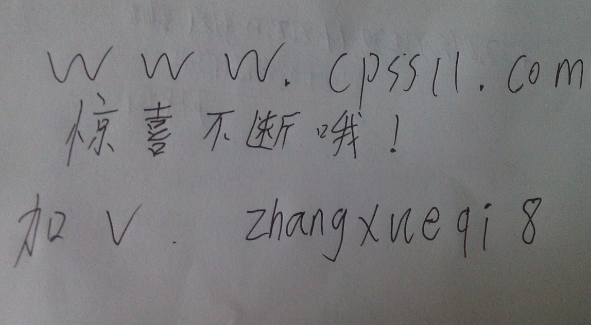 www.cpss11.com
惊喜不断哦!
加V. zhangxueqi8